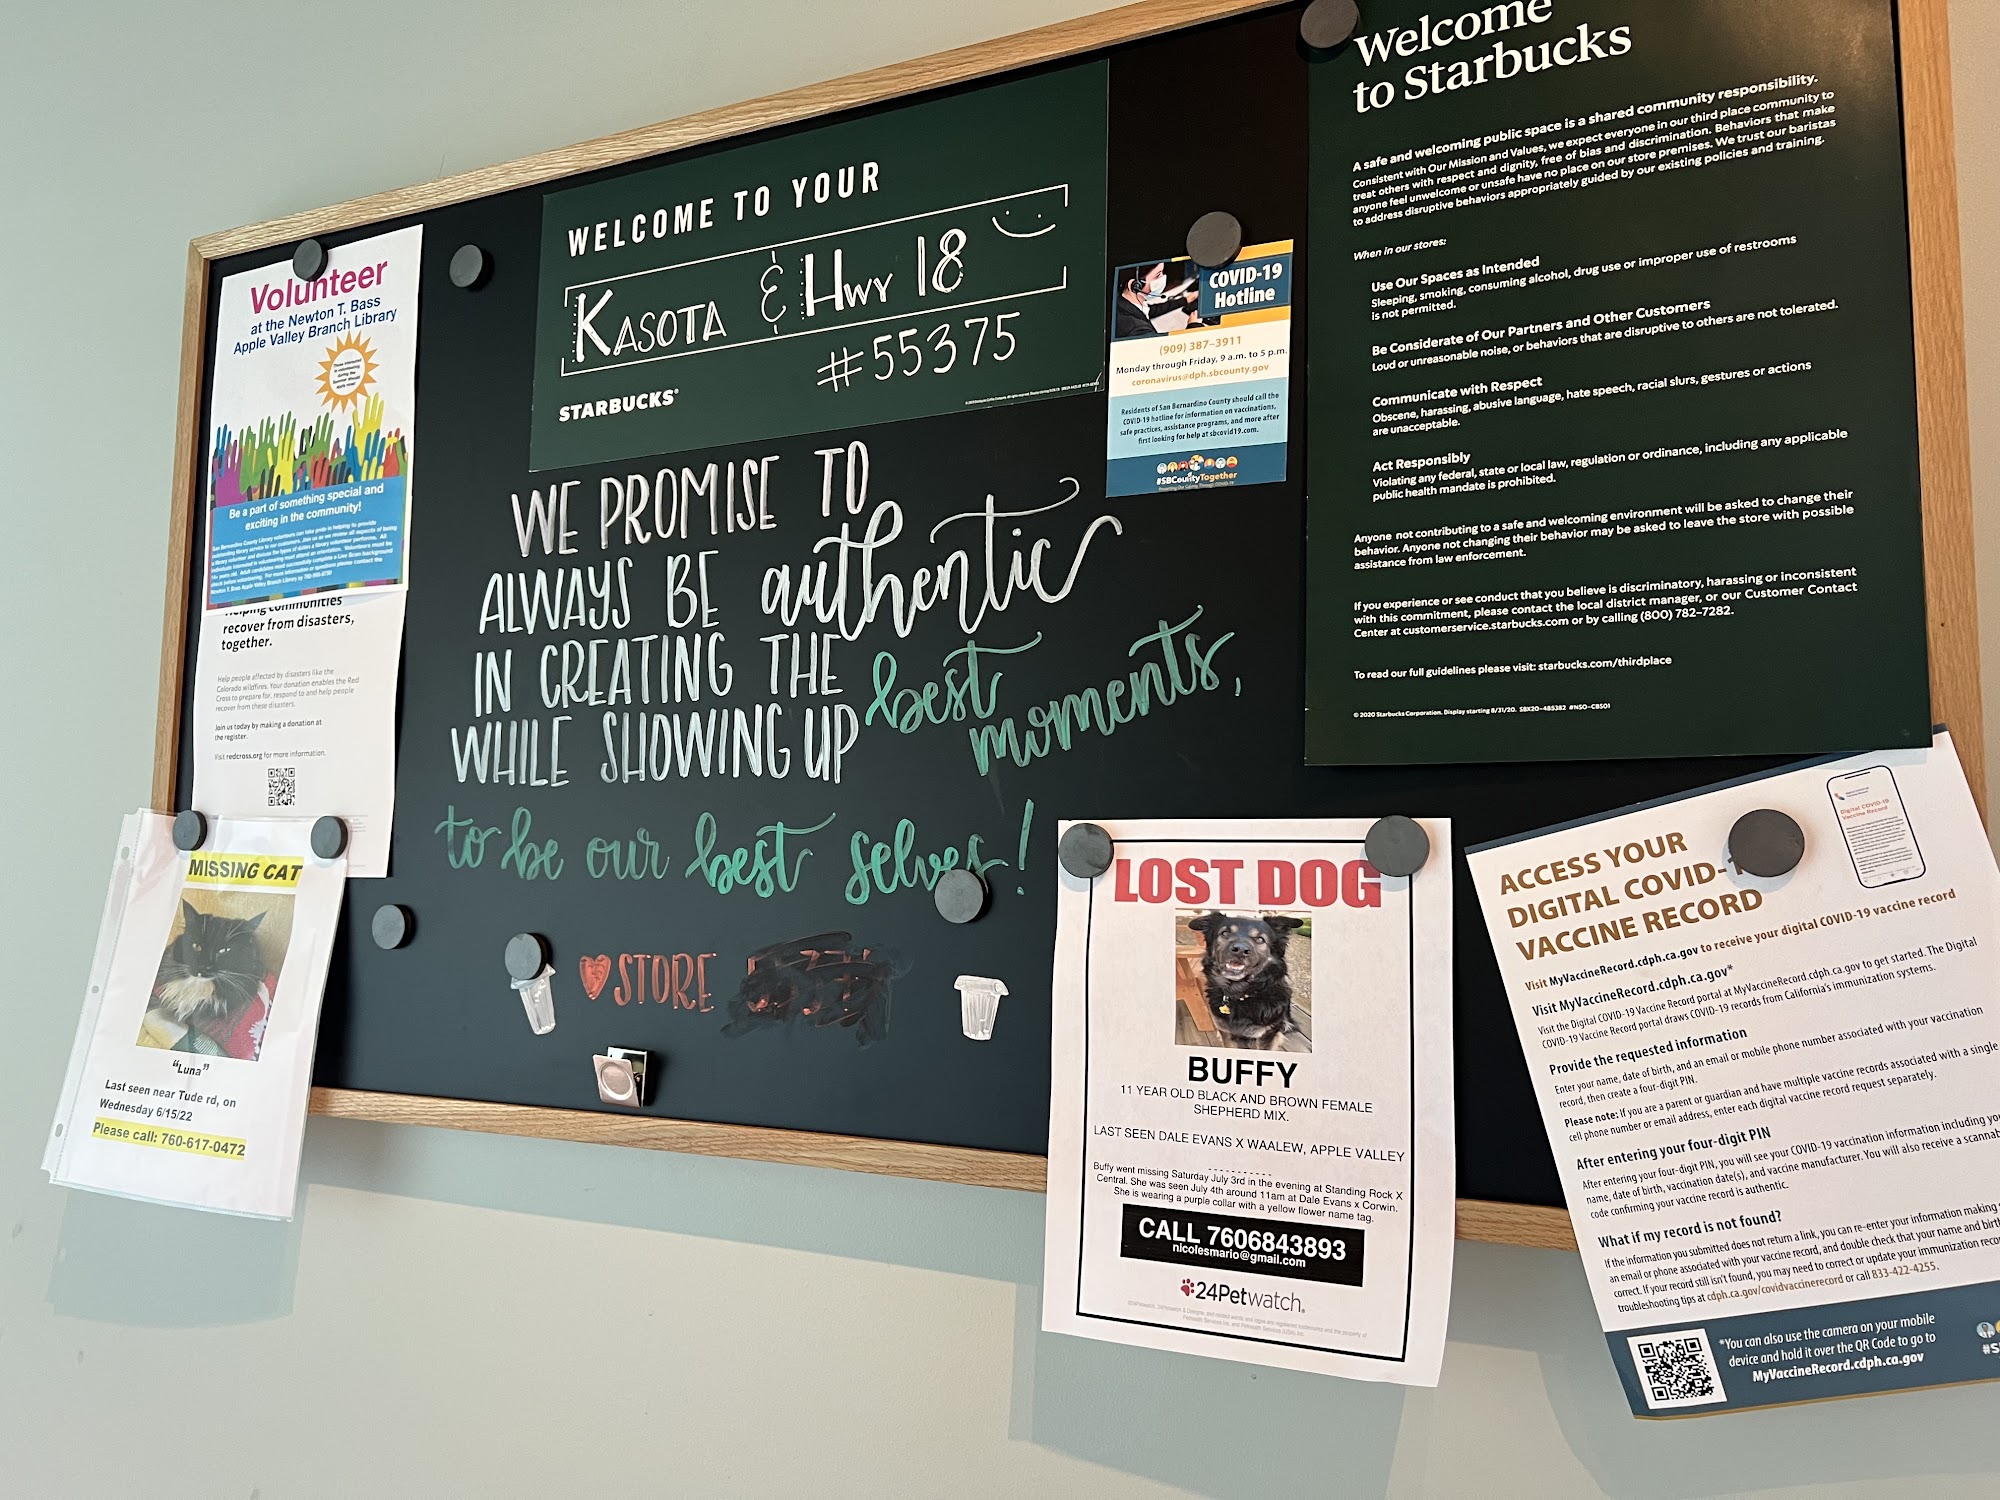 Volunteer
at the Newton T. Bass
Apple Valley Branch Library
Those interested
in volunteering
during the
Summer should
apply now!
Be a part of something special and
exciting in the community!
San Bernardino County Library volunteers can take pride in helping to provide
Newton T. Bass Apple Valley Branch Library
Helping communities
recover from disasters,
together.
Help people affected by disasters like the
Colorado wildfires. Your donation enables the Red
Cross to prepare for, respond to and help people
recover from these disasters.
Join us today by making a donation at
the register.
Visit redcross.org for more information.
MISSING CAT
"Luna"
Last seen near Tude rd, on
Wednesday 6/15/22
Please call: 760-617-0472
WELCOME TO YOUR
KASOTA & HWY 18
#55375
STARBUCKS®
WE PROMISE TO
ALWAYS BE authentic
IN CREATING THE best moments,
WHILE SHOWING UP
to be our best selves!
STORE
COVID-19
Hotline
(909) 387-3911
Monday through Friday, 9 a.m. to 5 p.m.
coronavirus@dph.sbcounty.gov
Residents of San Bernardino County should call the
COVID-19 hotline for information on vaccinations,
safe practices, assistance programs, and more after
first looking for help at sbcovid19.com.
#SBCountyTogether
LOST DOG
BUFFY
11 YEAR OLD BLACK AND BROWN FEMALE
SHEPHERD MIX.
LAST SEEN DALE EVANS X WAALEW, APPLE VALLEY
- - - - - - - - - - -
Buffy went missing Saturday July 3rd in the evening at Standing Rock X
Central. She was seen July 4th around 11am at Dale Evans x Corwin.
She is wearing a purple collar with a yellow flower name tag.
CALL 7606843893
nicolesmario@gmail.com
24Petwatch®
Welcome
to Starbucks
A safe and welcoming public space is a shared community responsibility.
Consistent with Our Mission and Values, we expect everyone in our third place community to
treat others with respect and dignity, free of bias and discrimination. Behaviors that make
anyone feel unwelcome or unsafe have no place on our store premises. We trust our baristas
to address disruptive behaviors appropriately guided by our existing policies and training.
When in our stores:
Use Our Spaces as Intended
Sleeping, smoking, consuming alcohol, drug use or improper use of restrooms
is not permitted.
Be Considerate of Our Partners and Other Customers
Loud or unreasonable noise, or behaviors that are disruptive to others are not tolerated.
Communicate with Respect
Obscene, harassing, abusive language, hate speech, racial slurs, gestures or actions
are unacceptable.
Act Responsibly
Violating any federal, state or local law, regulation or ordinance, including any applicable
public health mandate is prohibited.
Anyone not contributing to a safe and welcoming environment will be asked to change their
behavior. Anyone not changing their behavior may be asked to leave the store with possible
assistance from law enforcement.
If you experience or see conduct that you believe is discriminatory, harassing or inconsistent
with this commitment, please contact the local district manager, or our Customer Contact
Center at customerservice.starbucks.com or by calling (800) 782-7282.
To read our full guidelines please visit: starbucks.com/thirdplace
© 2020 Starbucks Corporation. Display starting 8/31/20. SBX20-485382 #NSO-CBS01
ACCESS YOUR
DIGITAL COVID-1
VACCINE RECORD
Digital COVID-19
Vaccine Record
Visit MyVaccineRecord.cdph.ca.gov to receive your digital COVID-19 vaccine record
Visit MyVaccineRecord.cdph.ca.gov*
Visit the Digital COVID-19 Vaccine Record portal at MyVaccineRecord.cdph.ca.gov to get started. The Digital
COVID-19 Vaccine Record portal draws COVID-19 records from California's immunization systems.
Provide the requested information
Enter your name, date of birth, and an email or mobile phone number associated with your vaccination
record, then create a four-digit PIN.
Please note: If you are a parent or guardian and have multiple vaccine records associated with a single
cell phone number or email address, enter each digital vaccine record request separately.
After entering your four-digit PIN
After entering your four-digit PIN, you will see your COVID-19 vaccination information including you
name, date of birth, vaccination date(s), and vaccine manufacturer. You will also receive a scannab
code confirming your vaccine record is authentic.
What if my record is not found?
If the information you submitted does not return a link, you can re-enter your information making
an email or phone associated with your vaccine record, and double check that your name and birth
correct. If your record still isn't found, you may need to correct or update your immunization reco
troubleshooting tips at cdph.ca.gov/covidvaccinerecord or call 833-422-4255.
*You can also use the camera on your mobile
device and hold it over the QR Code to go to
MyVaccineRecord.cdph.ca.gov
#S